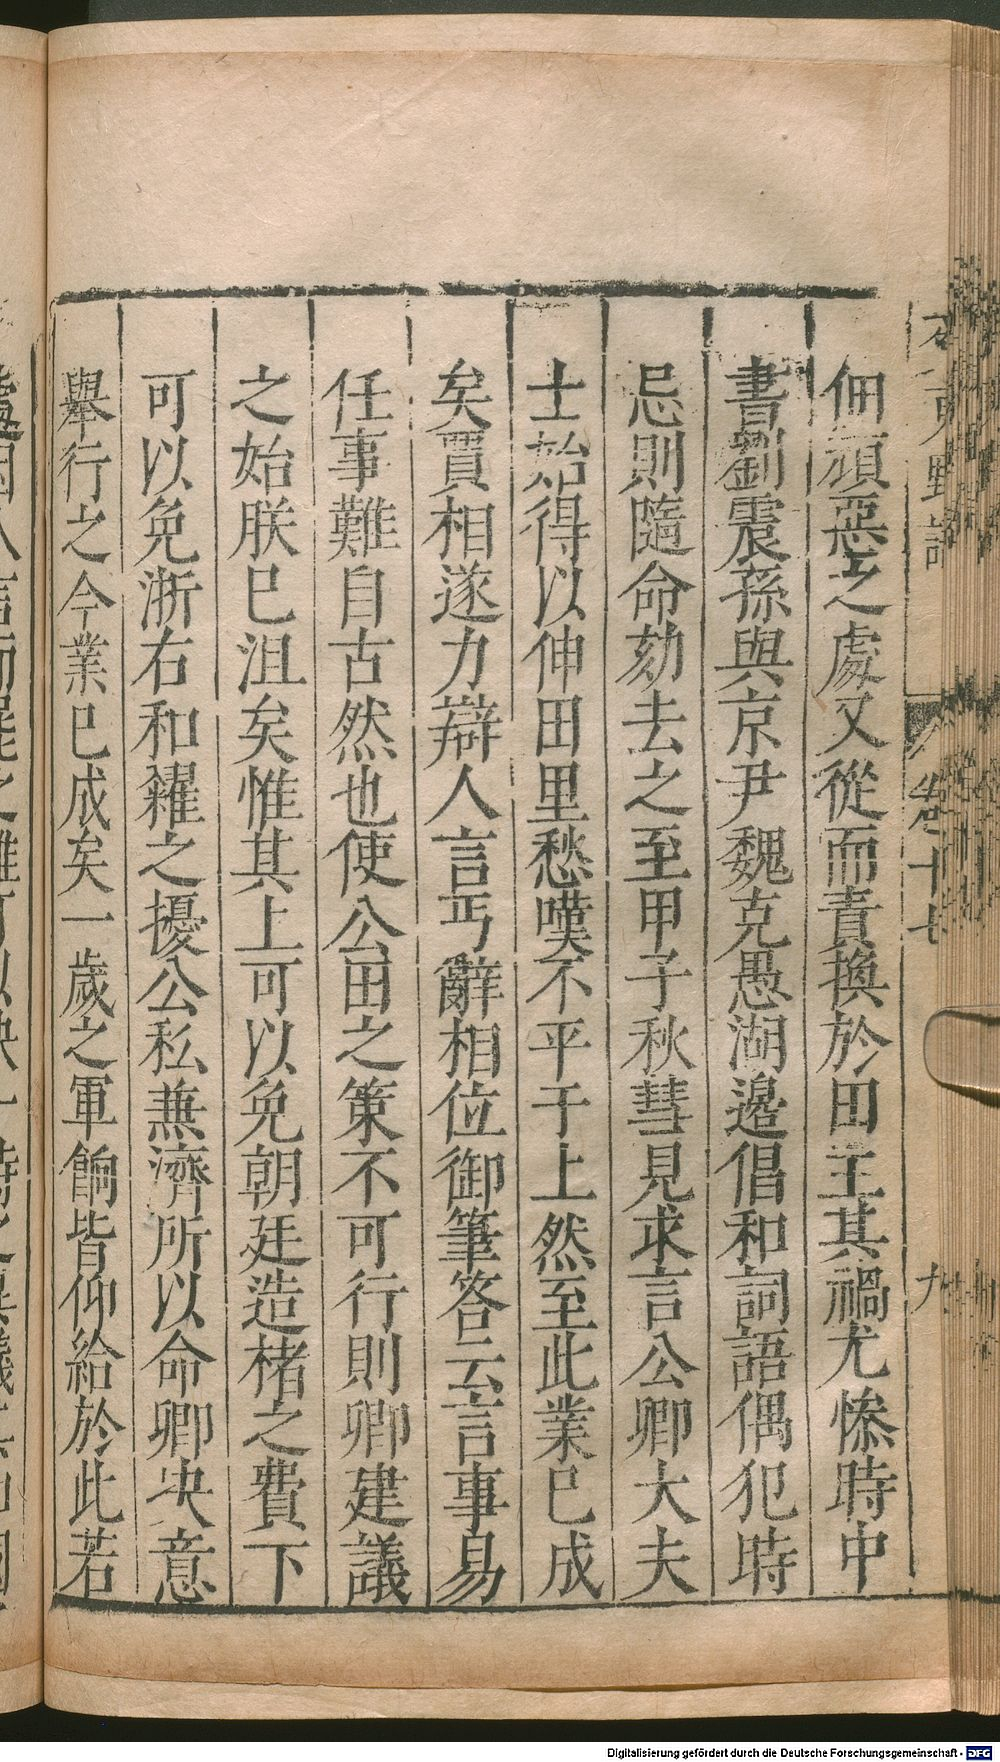 佃頑惡之處又從而責換於田主其禍尤慘時中
書劉震孫與京尹魏克愚湖邉倡和詞語偶犯時
忌則隨命劾去之至甲子秋彗見求言公卿大夫
士始得以伸田里愁嘆不平于上然至此業已成
矣賈相遂力辯人言丐辭相位御筆答云言事易
任事難自古然也使公田之策不可行則卿建議
之始朕已沮矣惟其上可以免朝廷造楮之費下
可以免浙右和糴之擾公私兼濟所以命卿决意
舉行之今業已成矣一歲之軍餉皆仰給於此若
卷十七
九
Digitalisierung gefördert durch die Deutsche Forschungsgemeinschaft - DFG